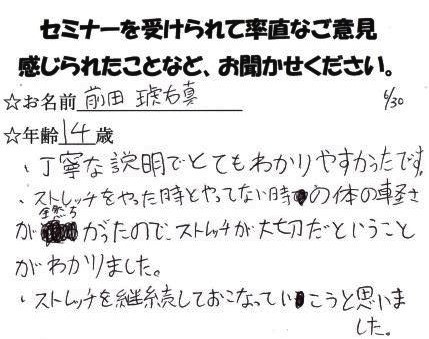 セミナーを受けられて率直なご意見
感じられたことなど、お聞かせください。
☆お名前 前田 琥右真 6/30
☆年齢 14 歳
・丁寧な説明でとてもわかりやすかったです。
・ストレッチをやった時とやってない時の体の軽さ
が全然ちがったので、ストレッチが大切だということ
がわかりました。
・ストレッチを継続しておこなっていこうと思いま
した。